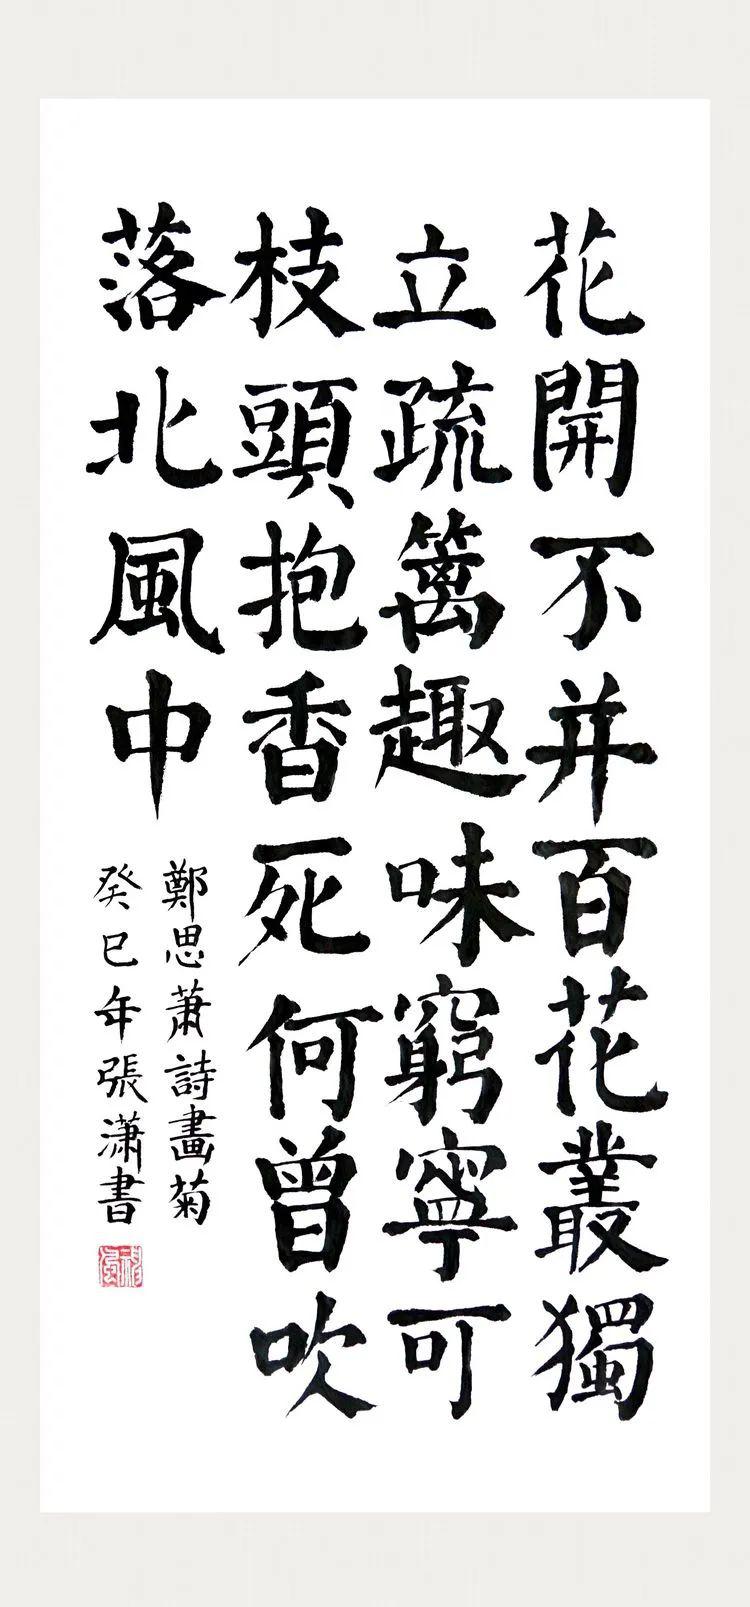 花開不并百花叢獨
立疏籬趣味窮寧可
枝頭抱香死何曾吹
落北風中
鄭思蕭詩畫菊
癸巳年張瀟書